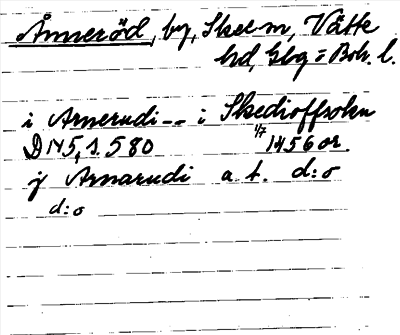 Ånneröd, by, Skee sn, Vätte
hd, Gbg o Boh. l.
i Arnerudi -- i Skedioffsokn
DN 5, s. 580 1/7 1456 or.
j Arnarudi a. t. d:o
d:o